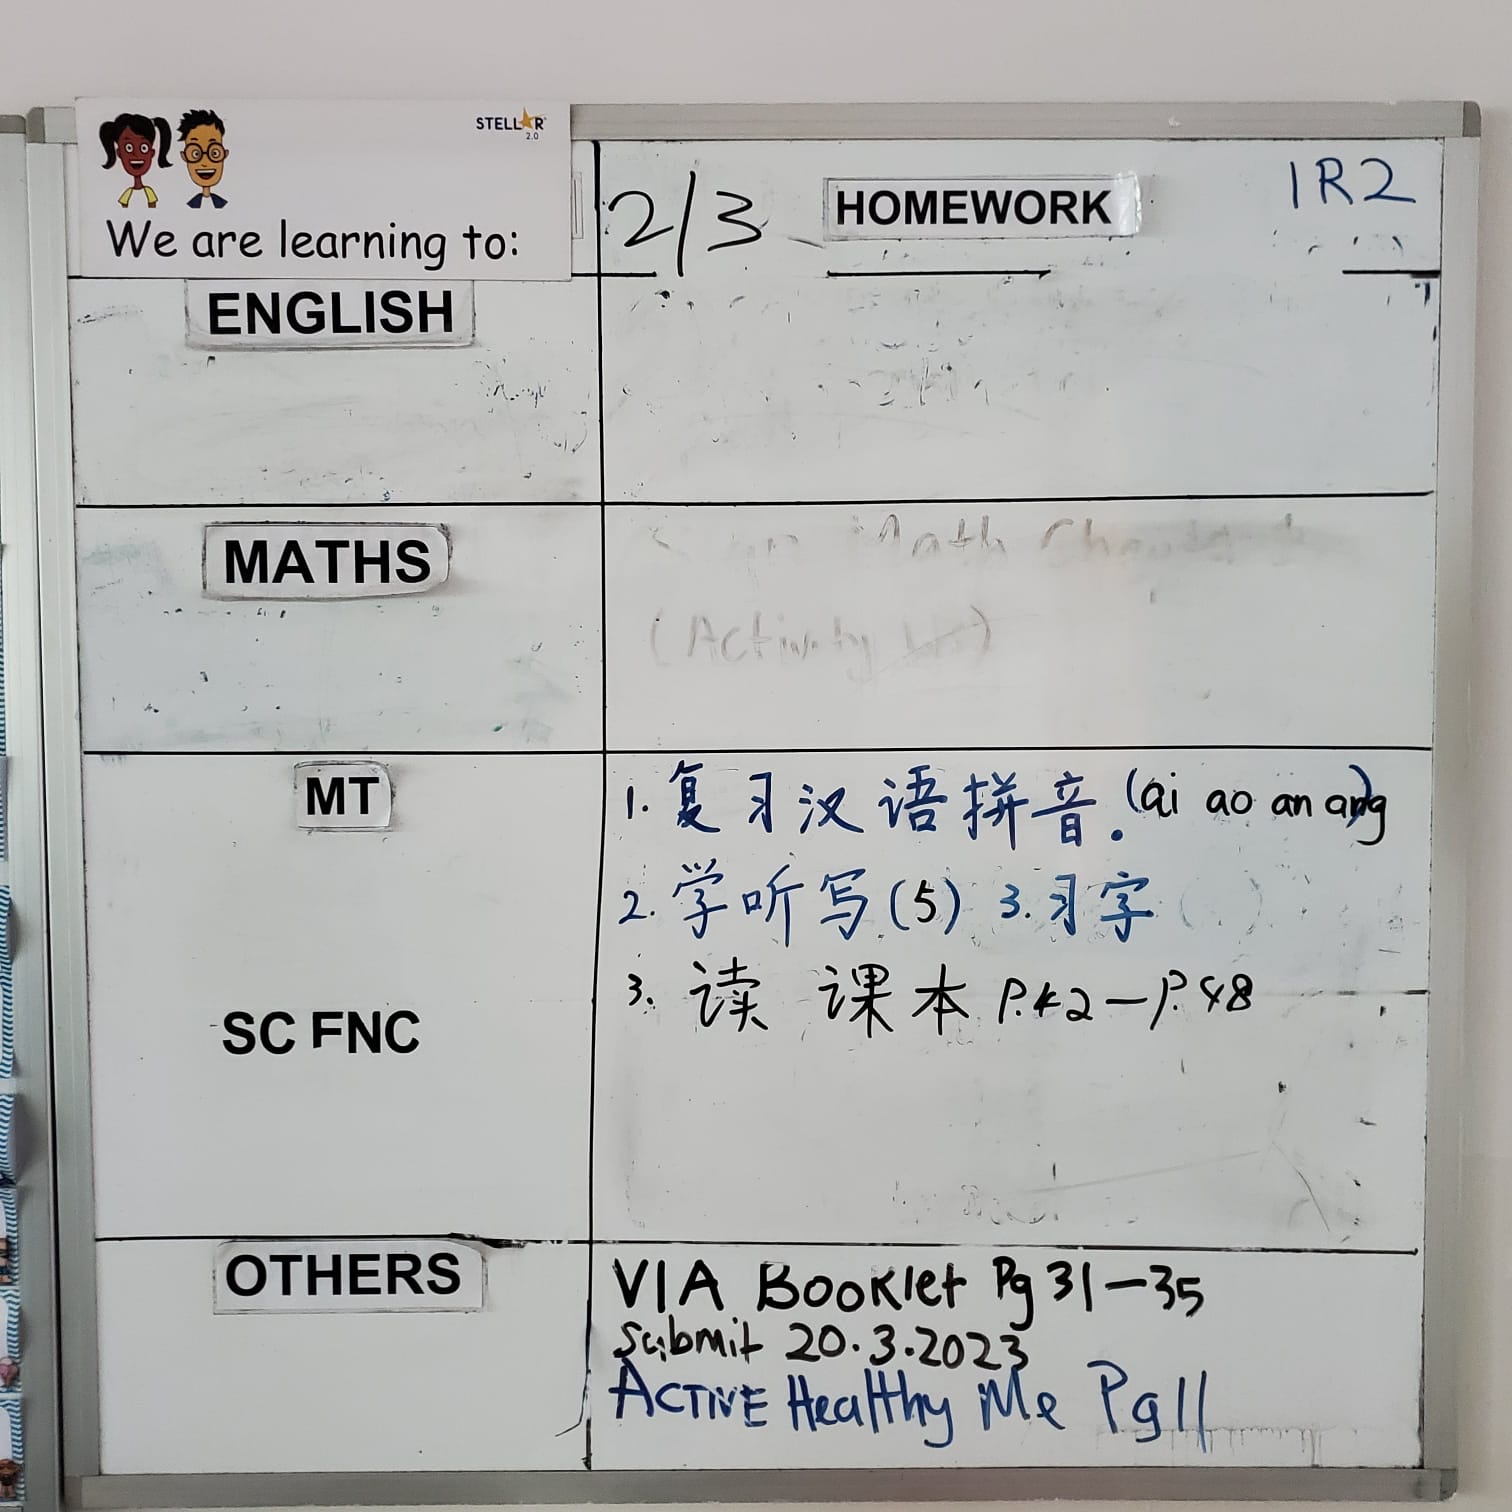 STELLAR 2.0
We are learning to:
2/3 HOMEWORK 1R2
ENGLISH
MATHS
Math
(Activity
MT
1. 复习汉语拼音. (ai ao an ang)
2. 学听写(5) 3. 习字
3. 读 课本 P.42-P.48
SC FNC
OTHERS
VIA Booklet Pg 31-35
Submit 20.3.2023
ACTIVE Healthy Me Pg 11